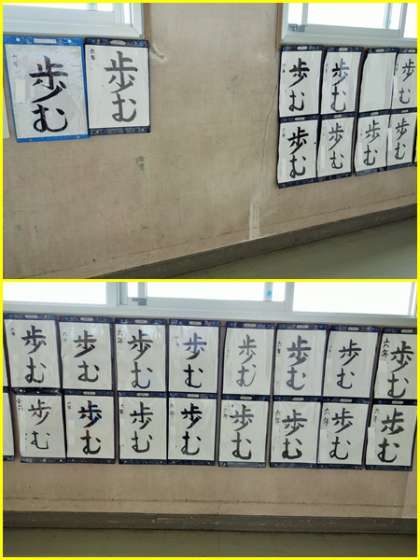 歩む
歩む
歩む
歩む
歩む
歩む
歩む
歩む
歩む
歩む
歩む
歩む
歩む
歩む
歩む
歩む
六年 歩む
歩む
歩む
歩む
歩む
歩む
歩む
歩む
歩む